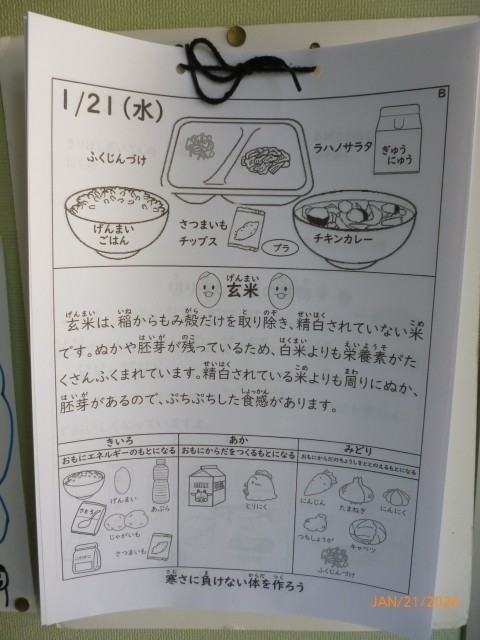 1/21(水)
B
ふくじんづけ
ラハノサラタ
ぎゅう
にゅう
げんまい
ごはん
さつまいも
チップス
プラ
チキンカレー
げんまい
玄米
げんまい いね がら と のぞ せいはく こめ
玄米は、稲からもみ殻だけを取り除き、精白されていない米
はいが のこ はくまい えいようそ
です。ぬかや胚芽が残っているため、白米よりも栄養素がた
せいはく こめ まわ
くさんふくまれています。精白されている米よりも周りにぬか、
はいが しょっかん
胚芽があるので、ぷちぷちした食感があります。
きいろ
おもにエネルギーのもとになる
げんまい
あぶら
さとう
じゃがいも
さつまいも
あか
おもにからだをつくるもとになる
とりにく
みどり
おもにからだのちょうしをととのえるもとになる
にんじん
たまねぎ
にんにく
つちしょうが
キャベツ
ふくじんづけ
さむ ま からだ つく
寒さに負けない体を作ろう
JAN/21/2026